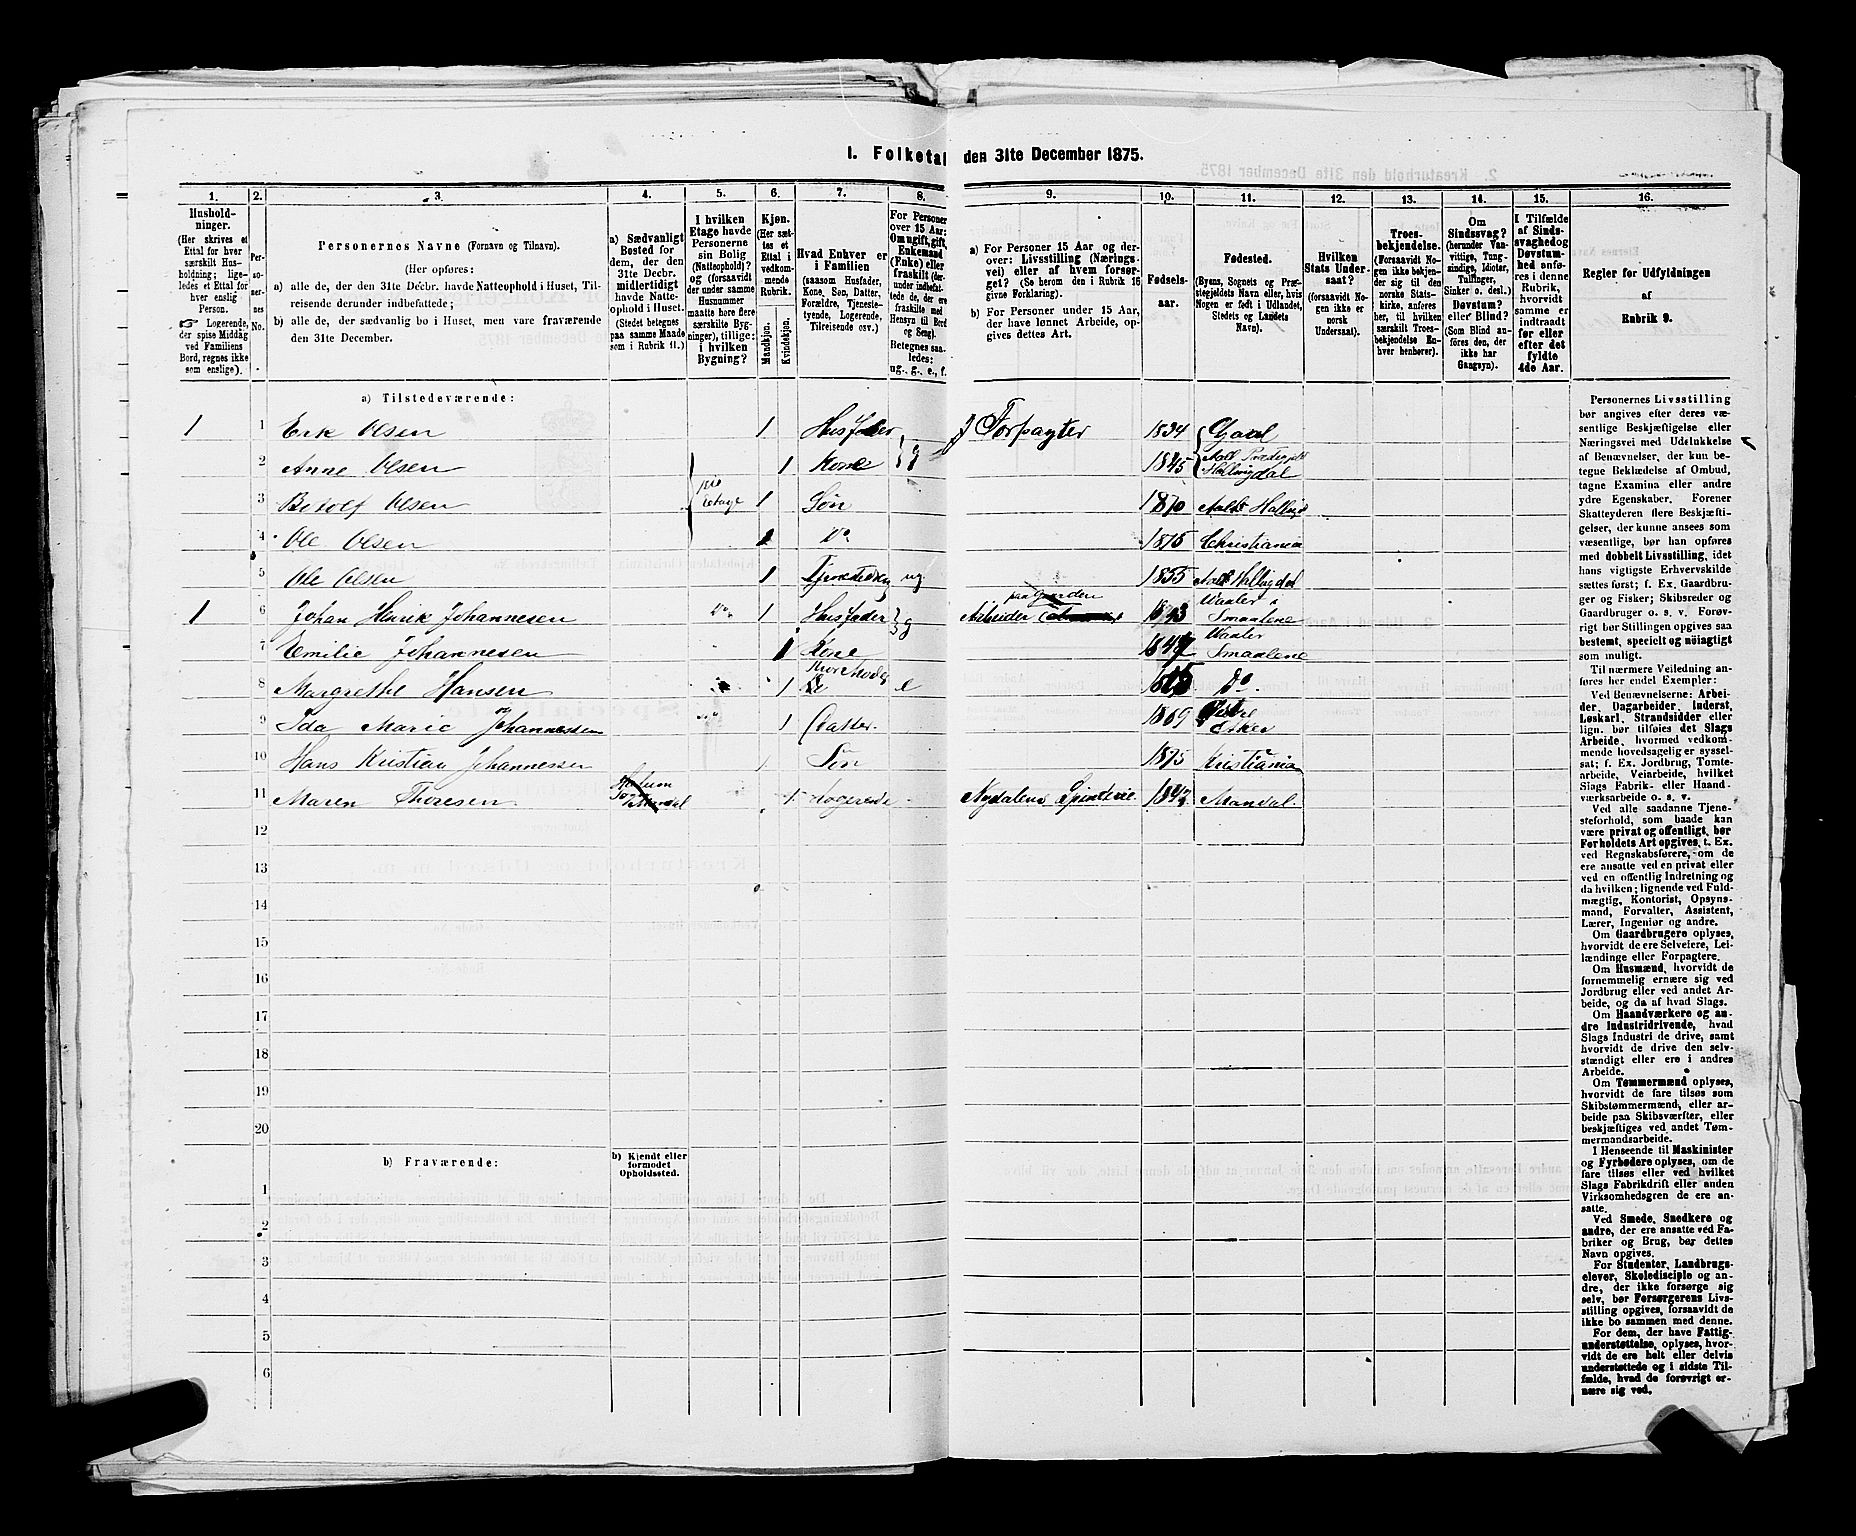 I. Folketal den 31te December 1875.
1. 2. 3. 4. 5. 6. 7. 8. 9. 10. 11. 12. 13. 14. 15. 16.
Hushold-
ninger.
(Her skrives et
Ettal for hver
særskilt Hus-
holdning; lige-
ledes et Ettal for
hver enslig
Person.
☞ Logerende,
der spise Middag
ved Familiens
Bord, regnes ikke
som enslige).
Per-
so-
ner-
nes
No.
Personernes Navne (Fornavn og Tilnavn).
(Her opføres:
a) alle de, der den 31te Decbr. havde Natteophold i Huset, Til-
reisende derunder indbefattede;
b) alle de, der sædvanlig bo i Huset, men vare fraværende
den 31te December.
a) Sædvanligt
Bosted for
dem, der den
31te Decbr.
midlertidigt
havde Natte-
ophold i Huset.
(Stedet betegnes
paa samme Maade
som i Rubrik 11.)
I hvilken
Etage havde
Personerne
sin Bolig
(Natteophold)?
(forsaavidt
der under samme
Husnummer
maatte høre flere
særskilte Byg-
ninger), tillige:
i hvilken
Bygning?
Kjøn.
(Her sæt-
tes et
Ettal i
vedkom-
mende
Rubrik.
Mandkjøn.
Kvindekjøn.
Hvad Enhver er
i Familien
(saasom Husfader,
Kone, Søn, Datter,
Forældre, Tjeneste-
tyende, Logerende,
Tilreisende osv.)
For Personer
over 15 Aar:
Om ugift, gift,
Enkemand
(Enke) eller
fraskilt (der-
under indbefat-
tede de, der ere
fraskilte med
Hensyn til Bord
og Seng).
Betegnes saa-
ledes:
ug., g., e., f.
a) For Personer 15 Aar og der-
over: Livsstilling (Nærings-
vei) eller af hvem forsør-
get? (Se herom den i Rubrik 16
givne Forklaring).
b) For Personer under 15 Aar,
der have lønnet Arbeide, op-
gives dettes Art.
Fødsels-
aar.
Fødested.
(Byens, Sognets og Præ-
stegjeldets Navn eller, hvis
Nogen er født i Udlandet,
Stedets og Landets
Navn).
Hvilken
Stats Under-
saat?
(forsaavidt No-
gen ikke er
norsk
Undersaat).
Troes-
bekjendelse.
(Forsaavidt No-
gen ikke bekjen-
der sig til den
norske Stats-
kirke, anføres
her, til hvilken
særskilt Troes-
bekjendelse En-
hver henhører).
Om
Sindssvag?
(herunder Van-
vittige, Tung-
sindige, Idioter,
Tullinger,
Sinker o. desl.)
Døvstum?
eller Blind?
(Som Blind an-
føres den, der
ikke har
Gangsyn).
I Tilfælde
af Sinds-
svaghed og
Døvstum-
hed anfø-
res i denne
Rubrik,
hvorvidt
samme er
indtraadt
før eller
efter det
fyldte
4de Aar.
Regler for Udfyldningen
af
Rubrik 9.
a) Tilstedeværende:
1 1 Erik Olsen 1 Husfader Forpagter 1834 Gaal
2 Anne Olsen 1 Kone g 1845 Aall Præstegjeld Hallingdal
3 Botolf Olsen Etage 1 Søn 1870
4 Ole Olsen Do 1875 Christiania
5 Ole Olsen 1 ug 1855 Aall Hallingdal
1 6 Johan Henrik Johannesen Do 1 Husfader g Arbeider paa Gaarden 1843 Waaler i Smaalene
7 Emilie Johannesen 1 Kone Waaler Smaalene
8 Margrethe Hansen 1 e Do.
9 Ida Marie Johannessen 1 Datter. 1869
10 Hans Kristian Johannessen 1 Søn 1875 Kristiania
11 Maren Thoresen Mandal 1 Logerende Nydalens Spinderie. Mandal.
12
13
14
15
16
17
18
19
20
b) Fraværende:
b) Kjendt eller
formodet
Opholdssted.
1
2
3
4
5
6
Personernes Livsstilling
bør angives efter deres væ-
sentlige Beskjæftigelse eller
Næringsvei med Udelukkelse
af Benævnelser, der kun be-
tegne Beklædelse af Ombud,
tagne Examina eller andre
ydre Egenskaber. Forener
Skatteyderen flere Beskjæfti-
gelser, der kunne ansees som
væsentlige, bør han opføres
med dobbelt Livsstilling, idet
hans vigtigste Erhvervskilde
sættes først; f. Ex. Gaardbru-
ger og Fisker; Skibsreder og
Gaardbruger o. s. v. Forøv-
rigt bør Stillingen opgives saa
bestemt, specielt og nøiagtigt
som muligt.
Til nærmere Veiledning an-
føres her endel Exempler:
Ved Benævnelserne: Arbei-
der, Dagarbeider, Inderst,
Løskarl, Strandsidder eller
lign. bør tilføies det Slags
Arbeide, hvormed vedkom-
mende hovedsagelig er syssel-
sat; f. Ex. Jordbrug, Tomte-
arbeide, Veiarbeide, hvilket
Slags Fabrik- eller Haand-
værksarbeide o. s. v.
Ved alle saadanne Tjene-
steforhold, som baade kan
være privat og offentligt, bør
Forholdets Art opgives, f. Ex.
ved Regnskabsførere, om de
ere ansatte ved en privat eller
ved en offentlig Indretning og
da hvilken; lignende ved Fuld-
mægtig, Kontorist, Opsyns-
mand, Forvalter, Assistent,
Lærer, Ingeniør og andre.
Om Gaardbrugere oplyses,
hvorvidt de ere Selveiere, Lei-
lændinge eller Forpagtere.
Om Husmænd, hvorvidt de
fornemmelig ernære sig ved
Jordbrug eller ved andet Ar-
beide, og da af hvad Slags.
Om Haandværkere og an-
dre Industridrivende, hvad
Slags Industri de drive, samt
hvorvidt de drive den selv-
stændigt eller ere i andres
Arbeide.
Om Tømmermænd oplyses,
hvorvidt de fare tilsøs som
Skibstømmermænd, eller ar-
beide paa Skibsværfter, eller
beskjæftiges ved andet Tøm-
mermandsarbeide.
I Henseende til Maskinister
og Fyrbødere oplyses, om de
fare tilsøs eller ved hvilket
Slags Fabrikdrift eller anden
Virksomhedsgren de ere an-
satte.
Ved Smede, Snedkere og
andre, der ere ansatte ved Fa-
briker og Brug, bør dettes
Navn opgives.
For Studenter, Landbrugs-
elever, Skoledisciple og an-
dre, der ikke forsørge sig
selv, bør Forsørgerens Livs-
stilling opgives, forsaavidt de
ikke bo sammen med denne.
For dem, der have Fattig-
understøttelse, oplyses, hvor-
vidt de ere helt eller delvis
understøttede og i sidste Til-
fælde, hvad de forøvrigt er-
nære sig ved.